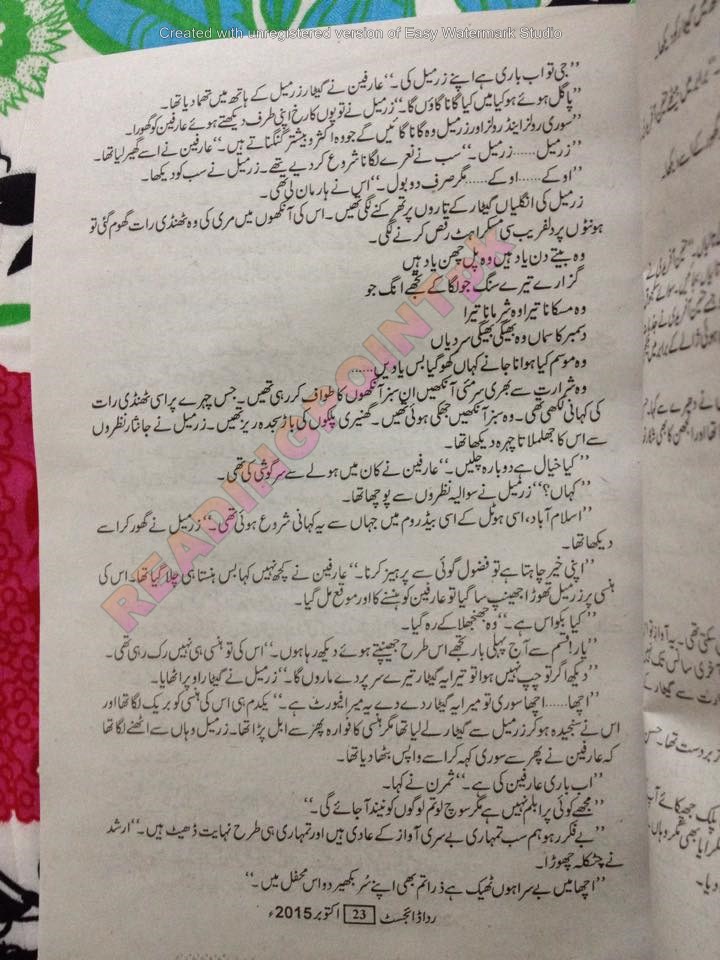 Created with unregistered version of Easy Watermark Studio
”جی تو اب باری ہے اپنے زرمیل کی۔“ عارفین نے گیٹار زرمیل کے ہاتھ میں تھما دیا تھا۔
”پاگل ہوئے ہو کیا میں کیا گانا گاؤں گا۔“ زرمیل نے توپوں کا رخ اپنی طرف دیکھتے ہوئے عارفین کو گھورا۔
”سوری رولز اینڈ رولز اور زرمیل وہ گانا گائیں گے جو وہ اکثر و بیشتر گنگناتے ہیں۔“ عارفین نے اسے گھیر لیا تھا۔
”زرمیل......زرمیل۔“ سب نے نعرے لگانا شروع کر دیے تھے۔ زرمیل نے سب کو دیکھا۔
”اوکے......اوکے......مگر صرف دو بول۔“ اس نے ہار مان لی تھی۔
زرمیل کی انگلیاں گیٹار کے تاروں پر تھرکنے لگی تھیں۔ اس کی آنکھوں میں مری کی وہ ٹھنڈی رات گھوم گئی تو
ہونٹوں پر دلفریب سی مسکراہٹ رقص کرنے لگی۔
وہ بیتے دن یاد ہیں وہ پل چھن یاد ہیں
گزارے تیرے سنگ جو لگا کے تجھے انگ جو
وہ مسکانا تیرا وہ شرمانا تیرا
دسمبر کا سماں وہ بھیگی بھیگی سردیاں
وہ موسم کیا ہوا نا جانے کہاں کھو گیا بس یادیں......
وہ شرارت سے بھری سرمئی آنکھیں ان سبز آنکھوں کا طواف کر رہی تھیں۔ جس چہرے پر اسی ٹھنڈی رات
کی کہانی لکھی تھی۔ وہ سبز آنکھیں جھکی ہوئی تھیں۔ گھنیری پلکوں کی باڑ سجدہ ریز تھیں۔ زرمیل نے جانثار نظروں
سے اس کا جھلملاتا چہرہ دیکھا تھا۔
”کیا خیال ہے دوبارہ چلیں۔“ عارفین نے کان میں ہولے سے سرگوشی کی تھی۔
”کہاں؟“ زرمیل نے سوالیہ نظروں سے پوچھا تھا۔
”اسلام آباد، اسی ہوٹل کے اسی بیڈ روم میں جہاں سے یہ کہانی شروع ہوئی تھی۔“ زرمیل نے گھور کر اسے
دیکھا تھا۔
”اپنی خیر چاہتا ہے تو فضول گوئی سے پرہیز کرنا۔“ عارفین نے کچھ نہیں کہا بس ہنستا ہی چلا گیا تھا۔ اس کی
ہنسی پر زرمیل تھوڑا جھینپ سا گیا تو عارفین کو ہنسنے کا اور موقع مل گیا۔
”کیا بکواس ہے۔“ وہ جھنجھلا کے رہ گیا۔
”یار! قسم سے آج پہلی بار تجھے اس طرح جھینپتے ہوئے دیکھ رہا ہوں۔“ اس کی تو ہنسی ہی نہیں رک رہی تھی۔
”دیکھ اگر تو چپ نہیں ہوا نا تو تیرا یہ گیٹار تیرے سر پر دے ماروں گا۔“ زرمیل نے گیٹار اوپر اٹھایا۔
”اچھا......اچھا سوری تو میرا یہ گیٹار دے دے یہ میرا فیورٹ ہے۔“ یکدم ہی اس کی ہنسی کو بریک لگا تھا اور
اس نے سنجیدہ ہو کر زرمیل سے گیٹار لے لیا تھا مگر ہنسی کا فوارہ پھر سے ابل پڑا تھا۔ زرمیل وہاں سے اٹھنے لگا تھا
کہ عارفین نے پھر سے سوری کہہ کر اسے واپس بٹھا دیا تھا۔
”اب باری عارفین کی ہے۔“ ثمرن نے کہا۔
”مجھے کوئی پرابلم نہیں ہے مگر سوچ لو تم لوگوں کو نیند آ جائے گی۔“
”بے فکر رہو ہم سب تمہاری بے سری آواز کے عادی ہیں اور تمہاری ہی طرح نہایت ڈھیٹ ہیں۔“ ارشد
نے چٹکلہ چھوڑا۔
”اچھا میں بے سرا ہوں ٹھیک ہے ذرا تم بھی اپنے سُر بکھیر دو اس محفل میں۔“
ردا ڈائجسٹ 23 اکتوبر 2015ء
READINGPOINTPK